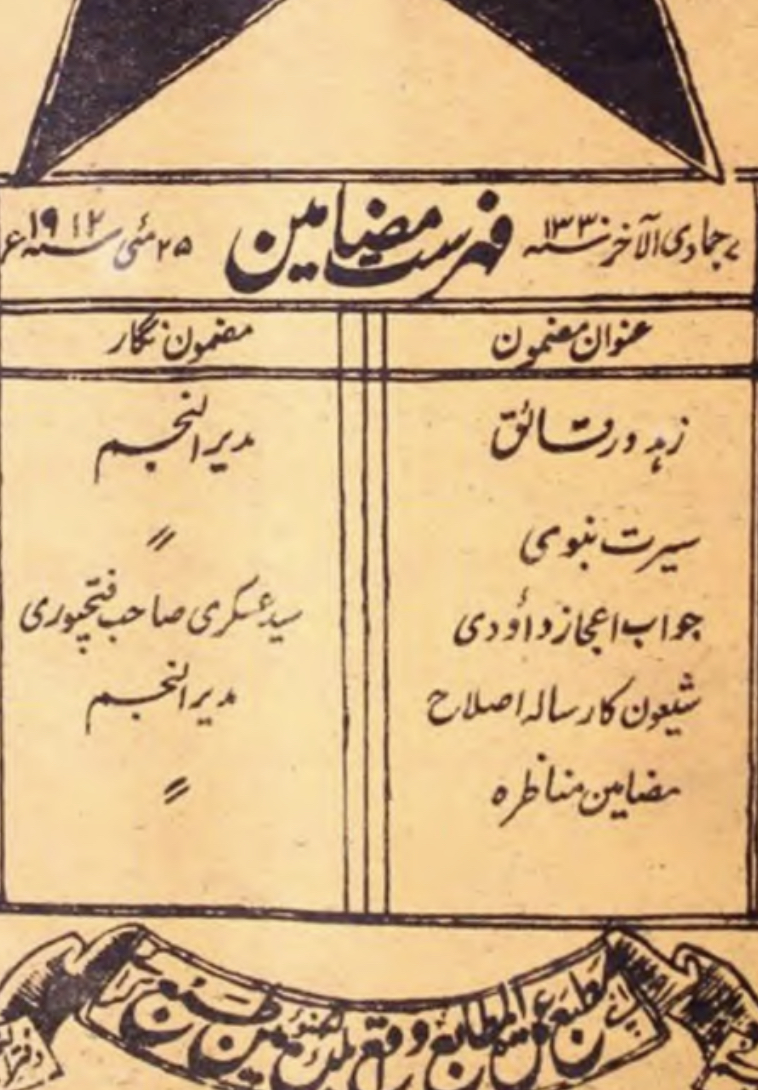 ۷ جمادی الآخر سنہ ۱۳۳۰ فہرست مضامین ۲۵ مئی سنہ ۱۹۱۲ء
عنوان مضمون مضمون نگار
زہد ورقائق مدیر النجم
سیرت نبوی 〃
جواب اعجاز داؤدی سید عسکری صاحب فتحپوری
شیعون کا رسالہ اصلاح مدیر النجم
مضامین مناظرہ 〃
مطبع عمدۃ المطابع واقع لکھنؤ مین طبع